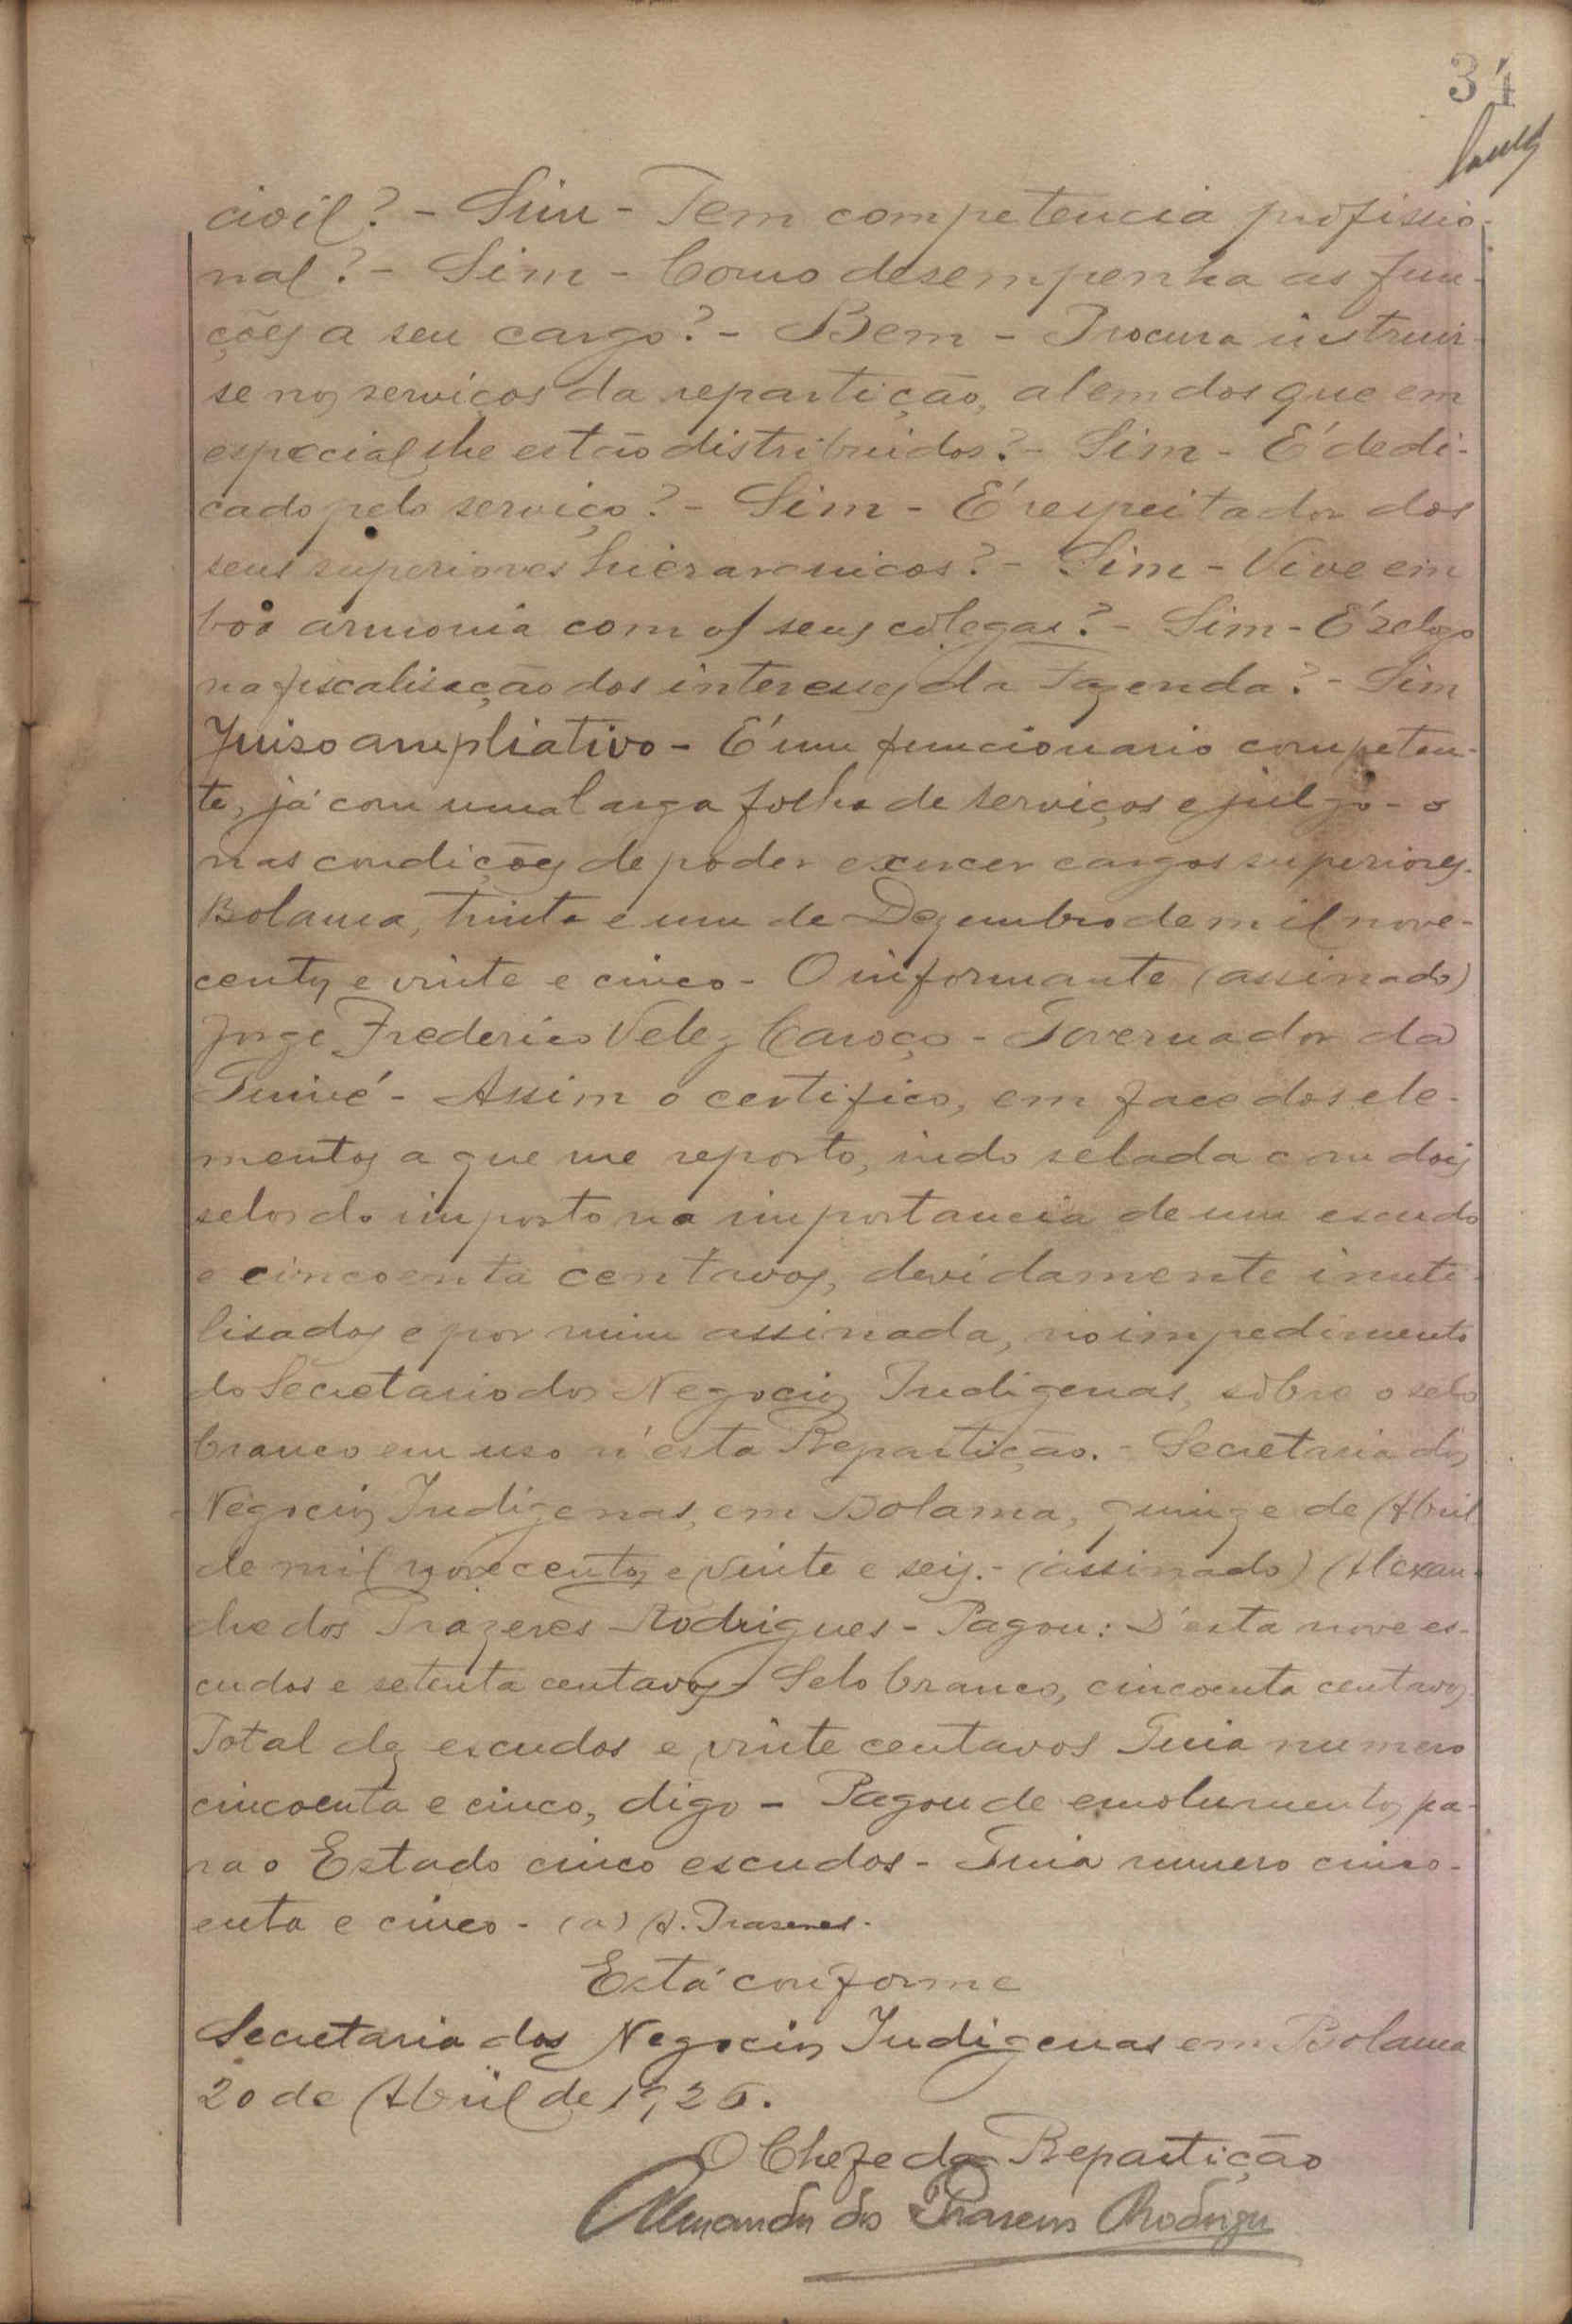 34
civil? - Sim - Tem competencia profissio-
nal? - Sim - Como desempenha as fun-
ções a seu cargo? - Bem - Procura instruir-
se nos serviços da repartição, alem dos que em
especial lhe estão distribuidos? - Sim - É dedi-
cado pelo serviço? - Sim - É respeitador dos
seus superiores hierarquicos? - Sim - Vive em
boa armonia com os seus colegas? - Sim - É zeloso
na fiscalisação dos interesses da Fazenda? - Sim
Juiso ampliativo - É um funcionario competen-
te, já com uma larga folha de serviços e julgo-o
nas condições de poder exercer cargos superiores.
Bolama, trinta e um de Dezembro de mil nove-
centos e vinte e cinco - O informante (assinado)
Jorge Frederico Velez Caroço - Governador da
Guiné - Assim o certifico, em face dos ele-
mentos a que me reporto, indo selada com dois
selos do imposto na importancia de um escudo
e cincoenta centavos, devidamente inuti-
lisados e por mim assinada, no impedimento
do Secretario dos Negocios Indigenas, sôbre o selo
branco em uso n'esta Repartição. - Secretaria dos
Negocios Indigenas, em Bolama, quinze de Abril
de mil novecentos e vinte e seis. - (assinado) Alexan-
dre dos Prazeres Rodrigues - Pagou: D'esta nove es-
cudos e setenta centavos - Selo branco, cincoenta centavos
Total dez escudos e vinte centavos Guia numero
cincoenta e cinco, digo - Pagou de emolumentos pa-
ra o Estado cinco escudos - Guia numero cinco-
enta e cinco - (a) A. Praseres -
Está conforme
Secretaria dos Negocios Indigenas em Bolama
20 de Abril de 1926.
O Chefe da Repartição
Alexandre dos Praseres Rodrigues